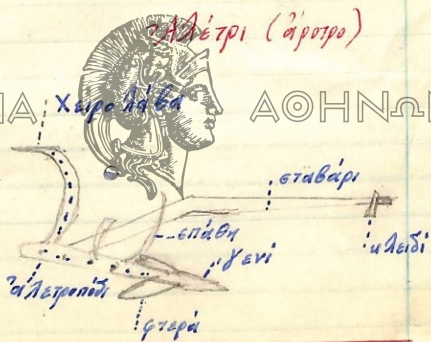 Ἀλέτρι (ἄροτρο)
ΑΘΗΝΩΝ
Χειρολάβα
σταβάρι
σπάθη
γενί
κλειδί
ἀλετροπόδι
φτερά